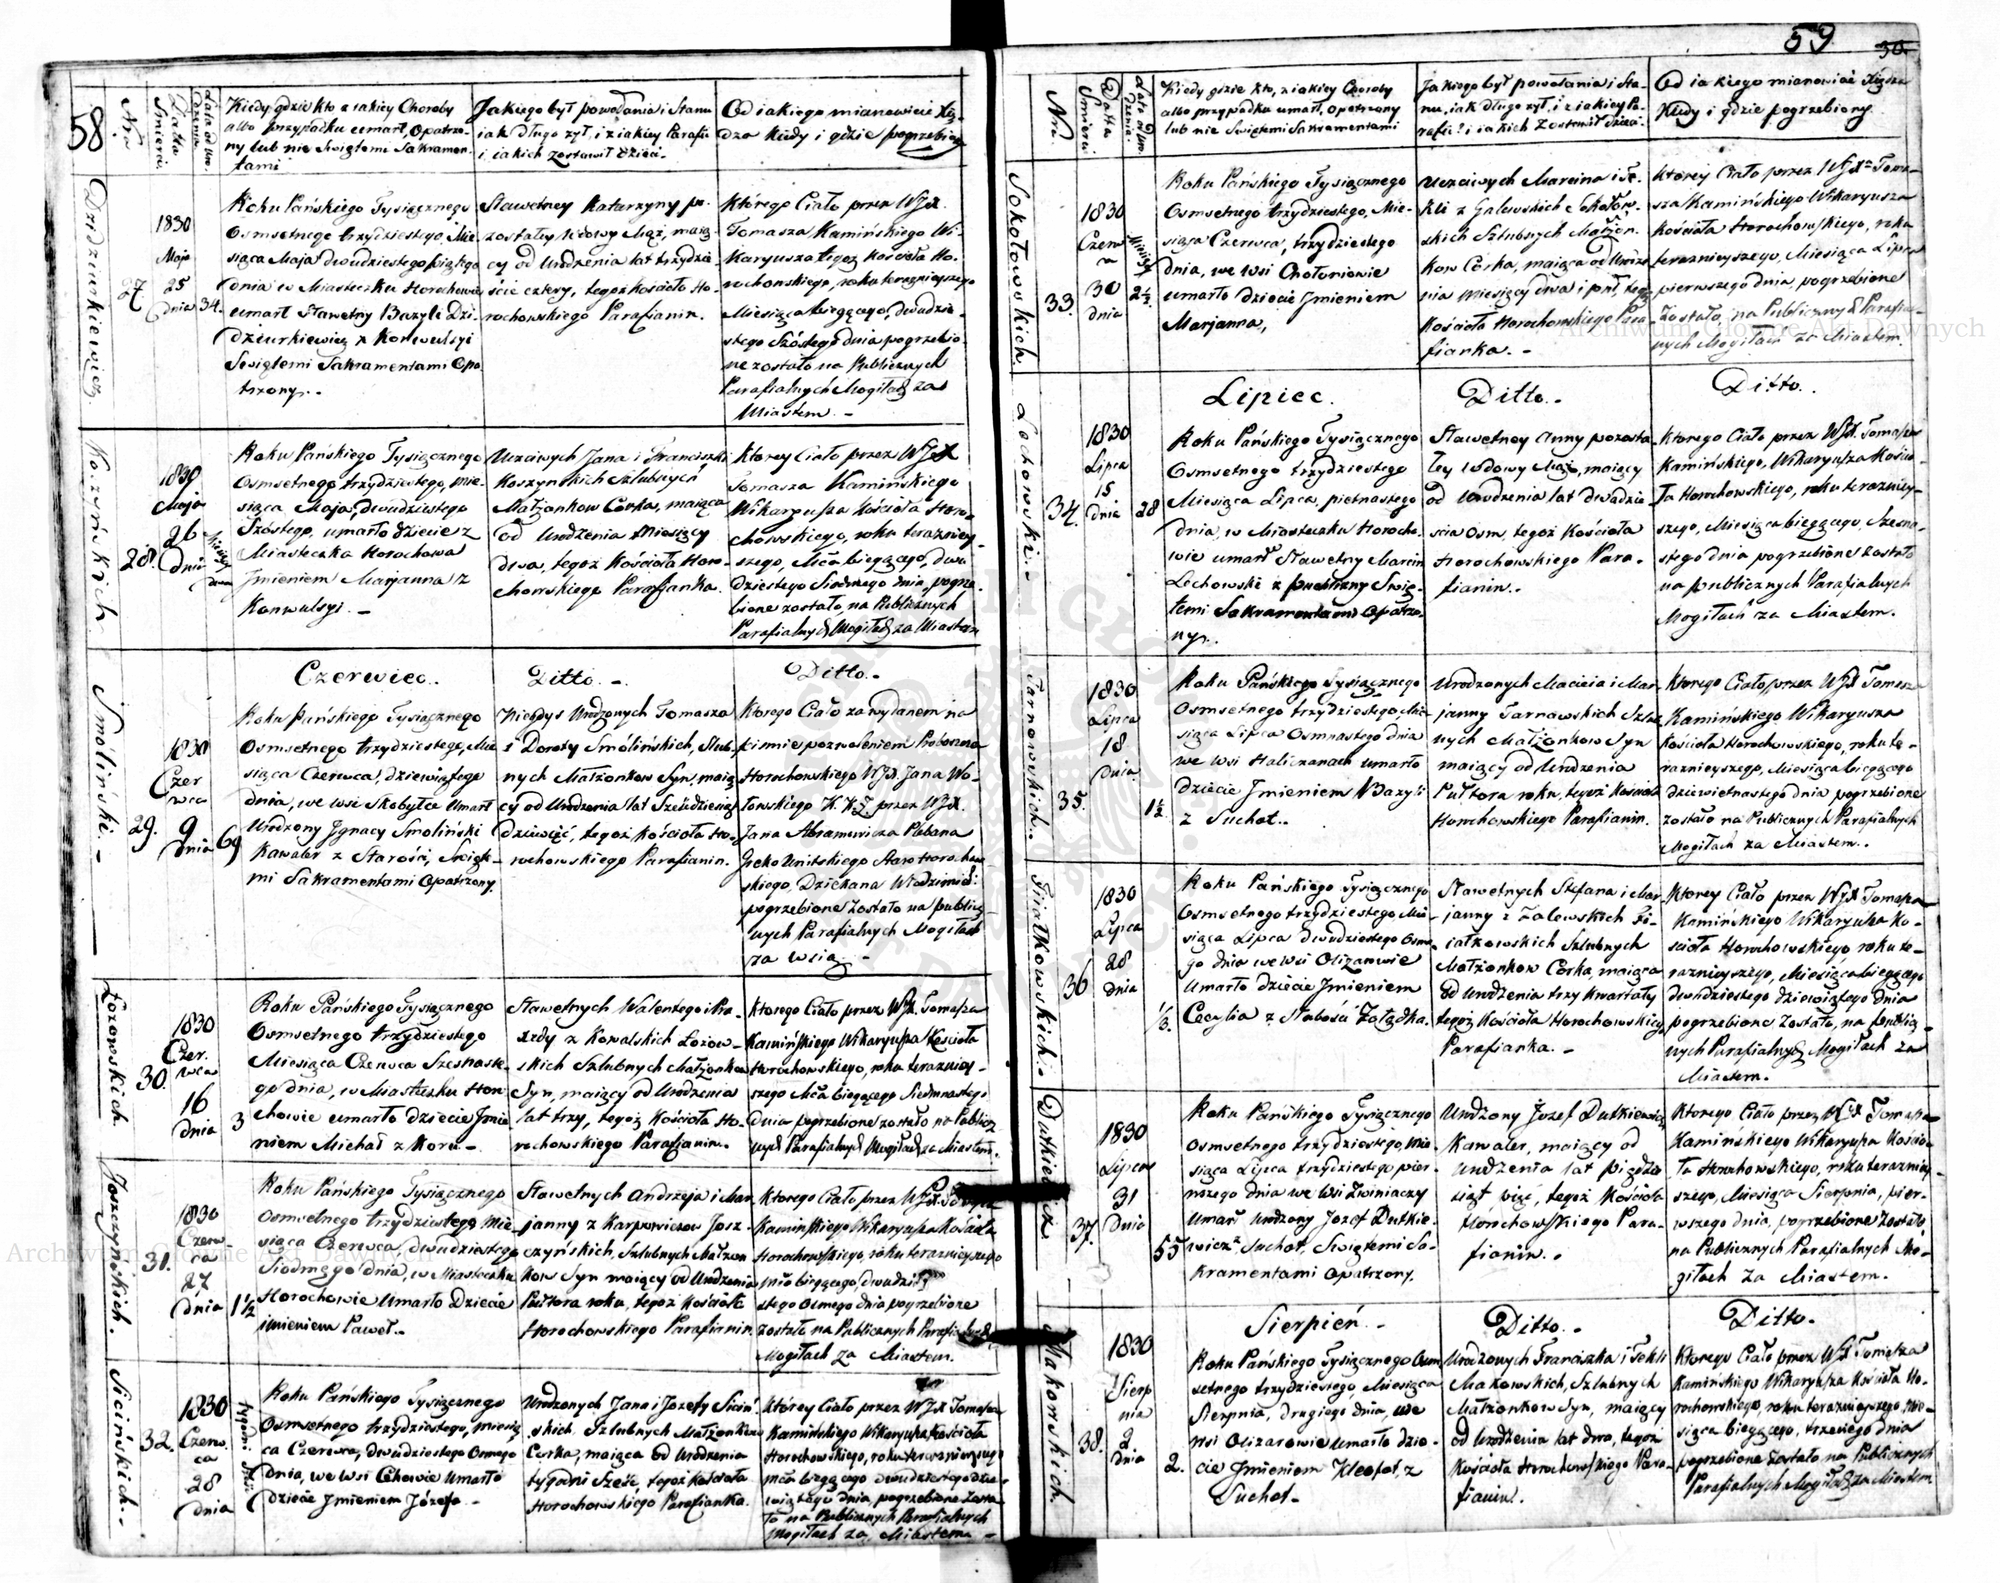 58.
Nrū
Data Śmierci
Lata od Urodzenia
Kiedy gdzie kto z iakiey Choroby
albo przypadku umarł, Opatrzo-
ny lub nie Swiętemi Sakramen-
tami
Jakiego był powołania i Stanu
iak długo żył, i z iakiey Parafii
i iakich zostawił dzieci.
Od iakiego mianowicie Xię-
dza kiedy i gdzie pogrzebiony
Dzidziurkiewicz.
27.
1830
Maja
25
dnia
34.
Roku Pańskiego Tysiącznego
Osmsetnego trzydziestego, Mie-
siąca Maja dwudziestego piątego
dnia w Miasteczku Horochowie
umarł Sławetny Bazyli Dzi-
dziurkiewicz z Konwulsyi
Swiętemi Sakramentami Opa-
trzony.
Sławetney Katarzyny po-
zostałey wdowy Mąż, maią-
cy od Urodzenia lat trzydzie-
ście cztery, tegoż Kościoła Ho-
rochowskiego Parafianin.
Którego Ciało przez WJX.
Tomasza Kamińskiego Wi-
karyusza tegoż Kościoła Ho-
rochowskiego, roku teraznieyszego
Miesiąca bieżącego, dwudzie-
stego Szóstego dnia pogrzebio-
ne zostało na Publicznych
Parafialnych Mogiłach za
Miastem. -
Kozyńskich
28.
1830
Maja
26
dnia
Roku Pańskiego Tysiącznego
Osmsetnego trzydziestego, Mie-
siąca Maja, dwudziestego
Szóstego, umarło dziecie z
Miasteczka Horochowa
Jmieniem Marjanna z
Konwulsyi. -
Uczciwych Jana i Franciszki
Koszynskich Szlubnych
Małżonkow Corka, maiąca
od Urodzenia Miesięcy
dwa, tegoż Kościoła Horo-
chowskiego Parafianka.
Ktorey Ciało przez WJX
Tomasza Kamińskiego
Wikaryusza Kościoła Horo-
chowskiego, roku teraźniey-
szego, Mca bieżącego, dwu-
dziestego Siodmego dnia, pogrze-
bione zostało, na Publicznych
Parafialnych Mogiłach za Miastem
Smoliński. -
Czerwiec.
Ditto. -
Ditto. -
29.
1830
Czer
wca
9
dnia
69
Roku Pańskiego Tysiącznego
Osmsetnego trzydziestego, Mie-
siąca Czerwca, dziewiątego
dnia, we wsi Skobyłce Umarł
Urodzony Jgnacy Smoliński
Kawaler z Starości, Swięte-
mi Sakramentami Opatrzony.
Niegdys Urodzonych Tomasza
i Doroty Smólińskich, Szlub-
nych Małżonkow Syn, maią-
cy od Urodzenia lat Szesćdziesiąt
dziewięć, tegoż Kościoła Ho-
rochowskiego Parafianin.
Ktorego Ciało za wydanem na
piśmie pozwoleniem Proboszcza
Horochowskiego WJX. Jana Wo-
łowskiego K. K. Ł. przez WJX.
Jana Abramowicza Plebana
Greko Unitskiego Staro Horochow
skiego, Dziekana Włodzimier:
pogrzebione Zostało na publicz-
nych Parafialnych Mogiłach
za wsią. -
Łozowskich.
30.
1830
Czer.
wca
16
dnia
3
Roku Pańskiego Tysiącznego
Osmsetnego trzydziestego
Miesiąca Czerwca Szesnaste-
go dnia, w Miasteczku Horo-
chowie umarło dziecie Jmie
niem Michał z Koru -
Sławetnych Walentego i Pra-
xedy z Kowalskich Łozow-
skich Szlubnych Małżonkow
Syn, maiący od Urodzenia
lat trzy, tegoż Kościoła Ho-
rochowskiego Parafianin.
Ktorego Ciało przez WJX. Tomasza
Kamińskiego Wikaryusza Kościoła
Horochowskiego, roku teraźniey-
szego Mca bieżącego Siedmnastego
Dnia pogrzebione zostało na Publicz
nych Parafialnych Mogiłach za Miastem.
Joszczyńskich.
31.
1830
Czerw-
ca
27
dnia
1½
Roku Pańskiego Tysiącznego
Osmsetnego trzydziestego Mie
siąca Czerwca, dwudziestego
Siodmego dnia, w Miasteczku
Horochowie Umarło Dziecie
imieniem Paweł. -
Sławetnych Andrzeja i Mar
janny z Karpowiczow Josz-
czyńskich, Szlubnych Małżon
kow Syn maiący od Urodzenia
Pułtora roku, tegoż Kościoła
Horochowskiego Parafianin.
Ktorego Ciało przez WJX. Tomasza
Kamińskiego Wikaryusza Kościoła
Horochowskiego, roku teraznieyszego
mca bieżącego, dwudzie-
stego Osmego dnia pogrzebione
zostało na Publicznych Parafialnych
Mogiłach za Miastem.
Siciński ch. -
32.
1830
Czerw.
ca
28
dnia
tygodni Sześć
Roku Pańskiego Tysiącznego
Osmsetnego trzydziestego, miesią
ca Czerwca, dwudziestego Osmego
dnia, we wsi Cehowie Umarło
dziecie Jmieniem Józefa -
Urodzonych Jana i Jozefy Siciń-
skich, Szlubnych Małżonkow
Corka, maiąca od Urodzenia
tygodni Sześć, tegoż Kościoła
Horochowskiego Parafianka.
Którey Ciało przez WJX Tomasza
Kamińskiego Wikaryusza Kościoła
Horochowskiego, roku teraznieyszego
mca bieżącego dwudziestego dzie-
wiątego dnia, pogrzebione Zosta-
ło na Publicznych Parafialnych
Mogiłach za Miastem. -
59
30.
Nrū
Data Śmierci
Lata od Urodzenia.
Kiedy gdzie kto, z iakiey Choroby
albo przypadku umarł, Opatrzony
lub nie Swiętemi Sakramentami
Jakiego był powołania i Sta-
nu, iak długo żył, i z iakiey Pa-
rafii? i iakich Zostawił dzieci.
Od iakiego mianowicie Xiędza
Kiedy i gdzie pogrzebiony.
Sokołowskich.
33.
1830
Czerw
ca
30
dnia
2½
Roku Pańskiego Tysiącznego
Osmsetnego trzydziestego, Mie-
siąca Czerwca, trzydziestego
dnia, we Wsi Chołoniowie
umarło dziecie Jmieniem
Marjanna,
Uczciwych Marcina i Te-
kli z Galewskich Sokołow-
skich Szlubnych Małżon-
kow Corka, maiąca od Urodze
nia Miesięcy dwa i puł, tegoż
Kościoła Horochowskiego Para
fianka. -
Ktorey Ciało przez WJXa Toma-
sza Kamińskiego Wikaryusza
Kościoła Horochowskiego, roku
teraznieyszego, Miesiąca Lipca
pierwszego dnia pogrzebione
Zostało, na Publicznych Parafial-
nych Mogiłach za Miastem.
Lechowski. -
Lipiec.
Ditto. -
Ditto.
34.
1830
Lipca
15
dnia
28
Roku Pańskiego Tysiącznego
Osmsetnego trzydziestego
Miesiąca Lipca, pietnastego
dnia, w Miasteczku Horocho-
wie umarł Sławetny Marcin
Lechowski z puchliny Swię-
temi Sakramentami Opatrzo-
ny.
Sławetney Anny pozosta-
łey wdowy Mąż, maiący
od Urodzenia lat dwadzie
ścia Osm, tegoż Kościoła
Horochowskiego Para-
fianin. -
Ktorego Ciało przez WJX. Tomasza
Kamińskiego, Wikaryusza Kościo-
ła Horochowskiego, roku teraźniey-
szego, Miesiąca bieżącego, Szesna-
stego dnia pogrzebione zostało
na publicznych Parafialnych
Mogiłach za Miastem.
Tarnowskich. -
35.
1830
Lipca
18
Dnia
1½
Roku Pańskiego Tysiącznego
Osmsetnego trzydziestego, Mie-
siąca Lipca Osmnastego dnia
we wsi Haliczanach umarło
dziecie Jmieniem Bazyli
z Suchot. -
Urodzonych Macieia i Mar-
janny Tarnawskich Szlub
nych Małżonkow Syn
maiący od Urodzenia
Pułtora roku, tegoż Kościoła
Horochowskiego Parafianin.
Ktorego Ciało przez WJX Tomasza
Kamińskiego Wikaryusza
Kościoła Horochowskiego, roku te-
raznieyszego, Miesiąca bieżącego
dziewietnastego dnia pogrzebione
zostało na Publicznych Parafialnych
Mogiłach za Miastem. -
Fijałkowskich. -
36
1830
Lipca
28
dnia
Roku Pańskiego Tysiącznego
Osmsetnego trzydziestego, Mie-
siąca Lipca dwudziestego Osme-
go dnia we wsi Olizarowie
Umarło dziecie Jmieniem
Cecylia z Słabości Żołądka.
Sławetnych Stefana i Mar
janny z Zalewskich Fi-
iałkowskich Szlubnych
Małżonkow Corka, maiąca
od Urodzenia trzy Kwartały
tegoż Kościoła Horochowskiego
Parafianka. -
Ktorey Ciało przez WJX Tomasza
Kamińskiego Wikaryusza Ko-
ścioła Horochowskiego, roku te-
raznieyszego, Miesiąca bieżącego
dwudziestego dziewiątego dnia
pogrzebione Zostało, na publicz-
nych Parafialnych Mogiłach za
Miastem.
Dutkiewicz
37.
1830
Lipca
31
Dnia
55
Roku Pańskiego Tysiącznego
Osmsetnego trzydziestego, Mie-
siąca Lipca trzydziestego pier-
wszego dnia we Wsi Zwiniaczy
Umarł Urodzony Jozef Dutkie-
wicz z Suchot, Swiętemi Sa-
kramentami Opatrzony.
Urodzony Jozef Dutkiewicz
Kawaler, maiący od
Urodzenia lat pięćdzie
siąt pięć, tegoż Kościoła
Horochowskiego Para-
fianin. -
Ktorego Ciało przez WJX Tomasza
Kamińskiego Wikaryusza Kościo-
ła Horochowskiego, roku terazniey-
szego, Miesiąca Sierpnia, pier-
wszego dnia, pogrzebione zostało
na Publicznych Parafialnych Mo-
giłach za Miastem.
Makowskich.
Sierpień. -
Ditto. -
Ditto.
38.
1830
Sierp
nia
2
Dnia
2.
Roku Pańskiego Tysiącznego Osm
setnego trzydziestego, Miesiąca
Sierpnia, drugiego dnia, we
wsi Olizarowie umarło dzie-
cie Jmieniem Kleofot, z
Suchot -
Urodzonych Franciszka i Tekli
Makowskich, Szlubnych
Małżonkow Syn, maiący
od Urodzenia lat dwa, tegoż
Kościoła Horochowskiego Para-
fianin.
Ktorego Ciało przez WJX Tomasza
Kamińskiego Wikaryusza Kościoła Ho-
rochowskiego, roku teraznieyszego, Mie-
siąca bieżącego, trzeciego dnia
pogrzebione Zostało na Publicznych
Parafialnych Mogiłach za Miastem
Archiwum Główne Akt Dawnych
Archiwum Główne Akt Dawnych